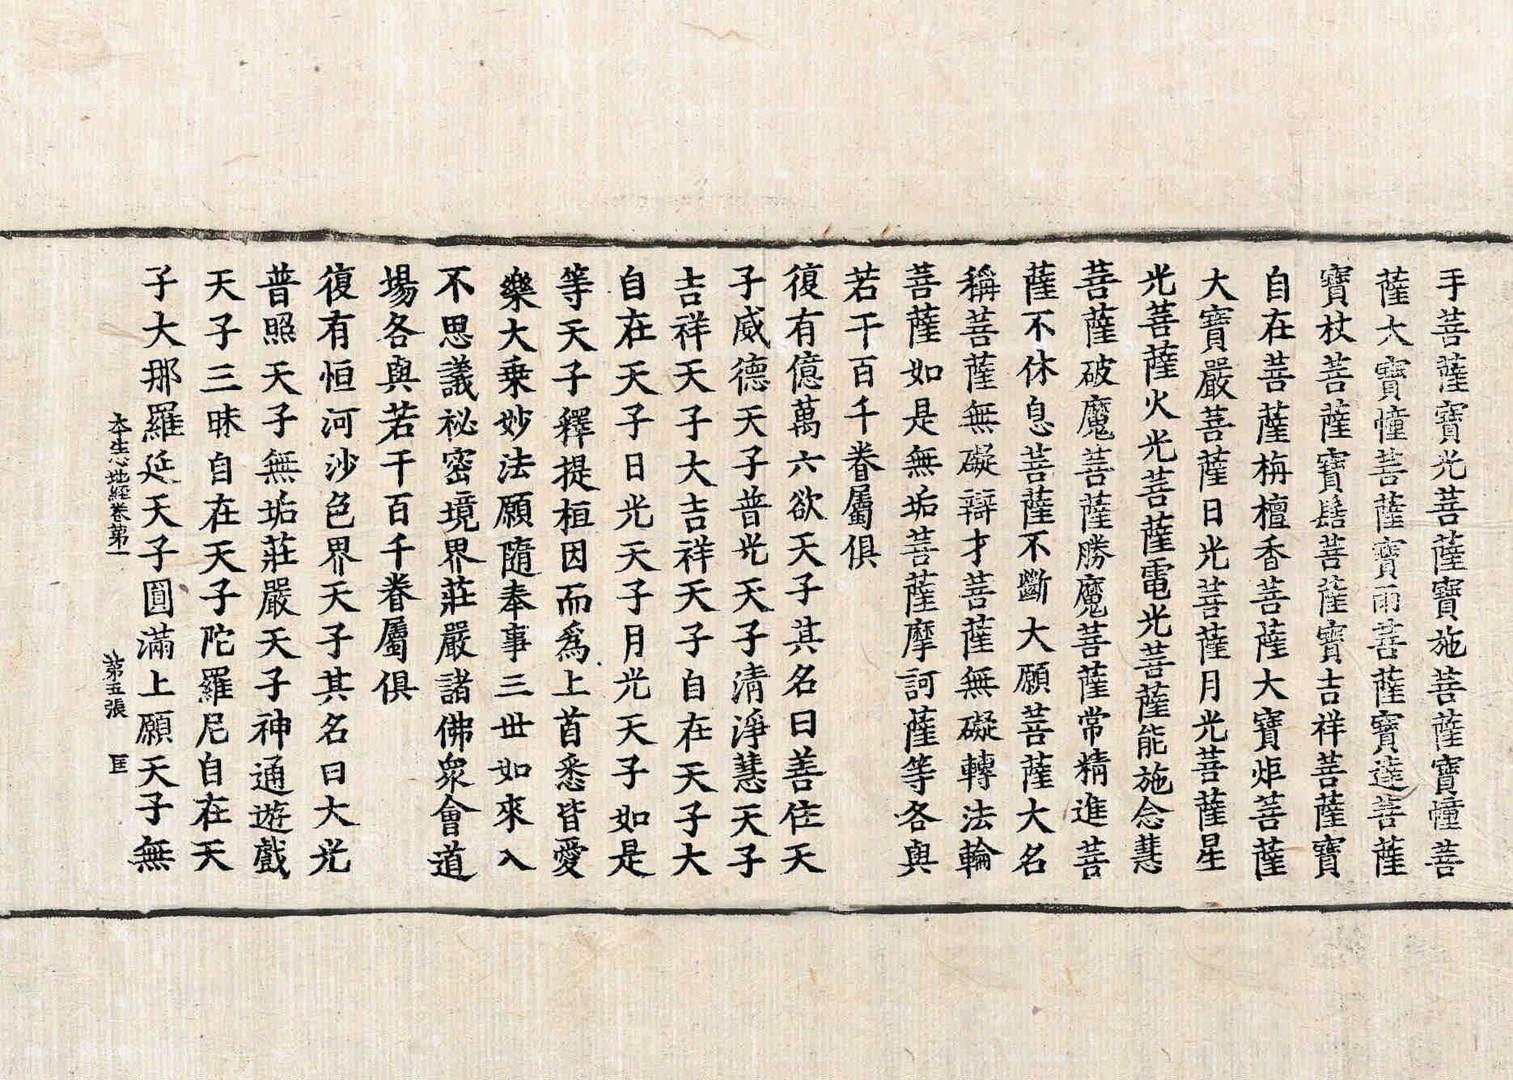 手菩薩寶光菩薩寶施菩薩寶幢菩
薩大寶幢菩薩寶雨菩薩寶達菩薩
寶杖菩薩寶髻菩薩寶吉祥菩薩寶
自在菩薩栴檀香菩薩大寶炬菩薩
大寶嚴菩薩日光菩薩月光菩薩星
光菩薩火光菩薩電光菩薩能施念慧
菩薩破魔菩薩勝魔菩薩常精進菩
薩不休息菩薩不斷大願菩薩大名
稱菩薩無礙辯才菩薩無礙轉法輪
菩薩如是無垢菩薩摩訶薩等各與
若干百千眷屬俱
復有億萬六欲天子其名曰善住天
子威德天子普光天子清淨慧天子
吉祥天子大吉祥天子自在天子大
自在天子日光天子月光天子如是
等天子釋提桓因而爲上首悉皆愛
樂大乗妙法願隨奉事三世如來入
不思議祕密境界莊嚴諸佛衆會道
場各與若干百千眷屬俱
復有恒河沙色界天子其名曰大光
普照天子無垢莊嚴天子神通遊戲
天子三昧自在天子陀羅尼自在天
子大那羅延天子圓滿上願天子無
本生心地經卷第一 第五張 匡